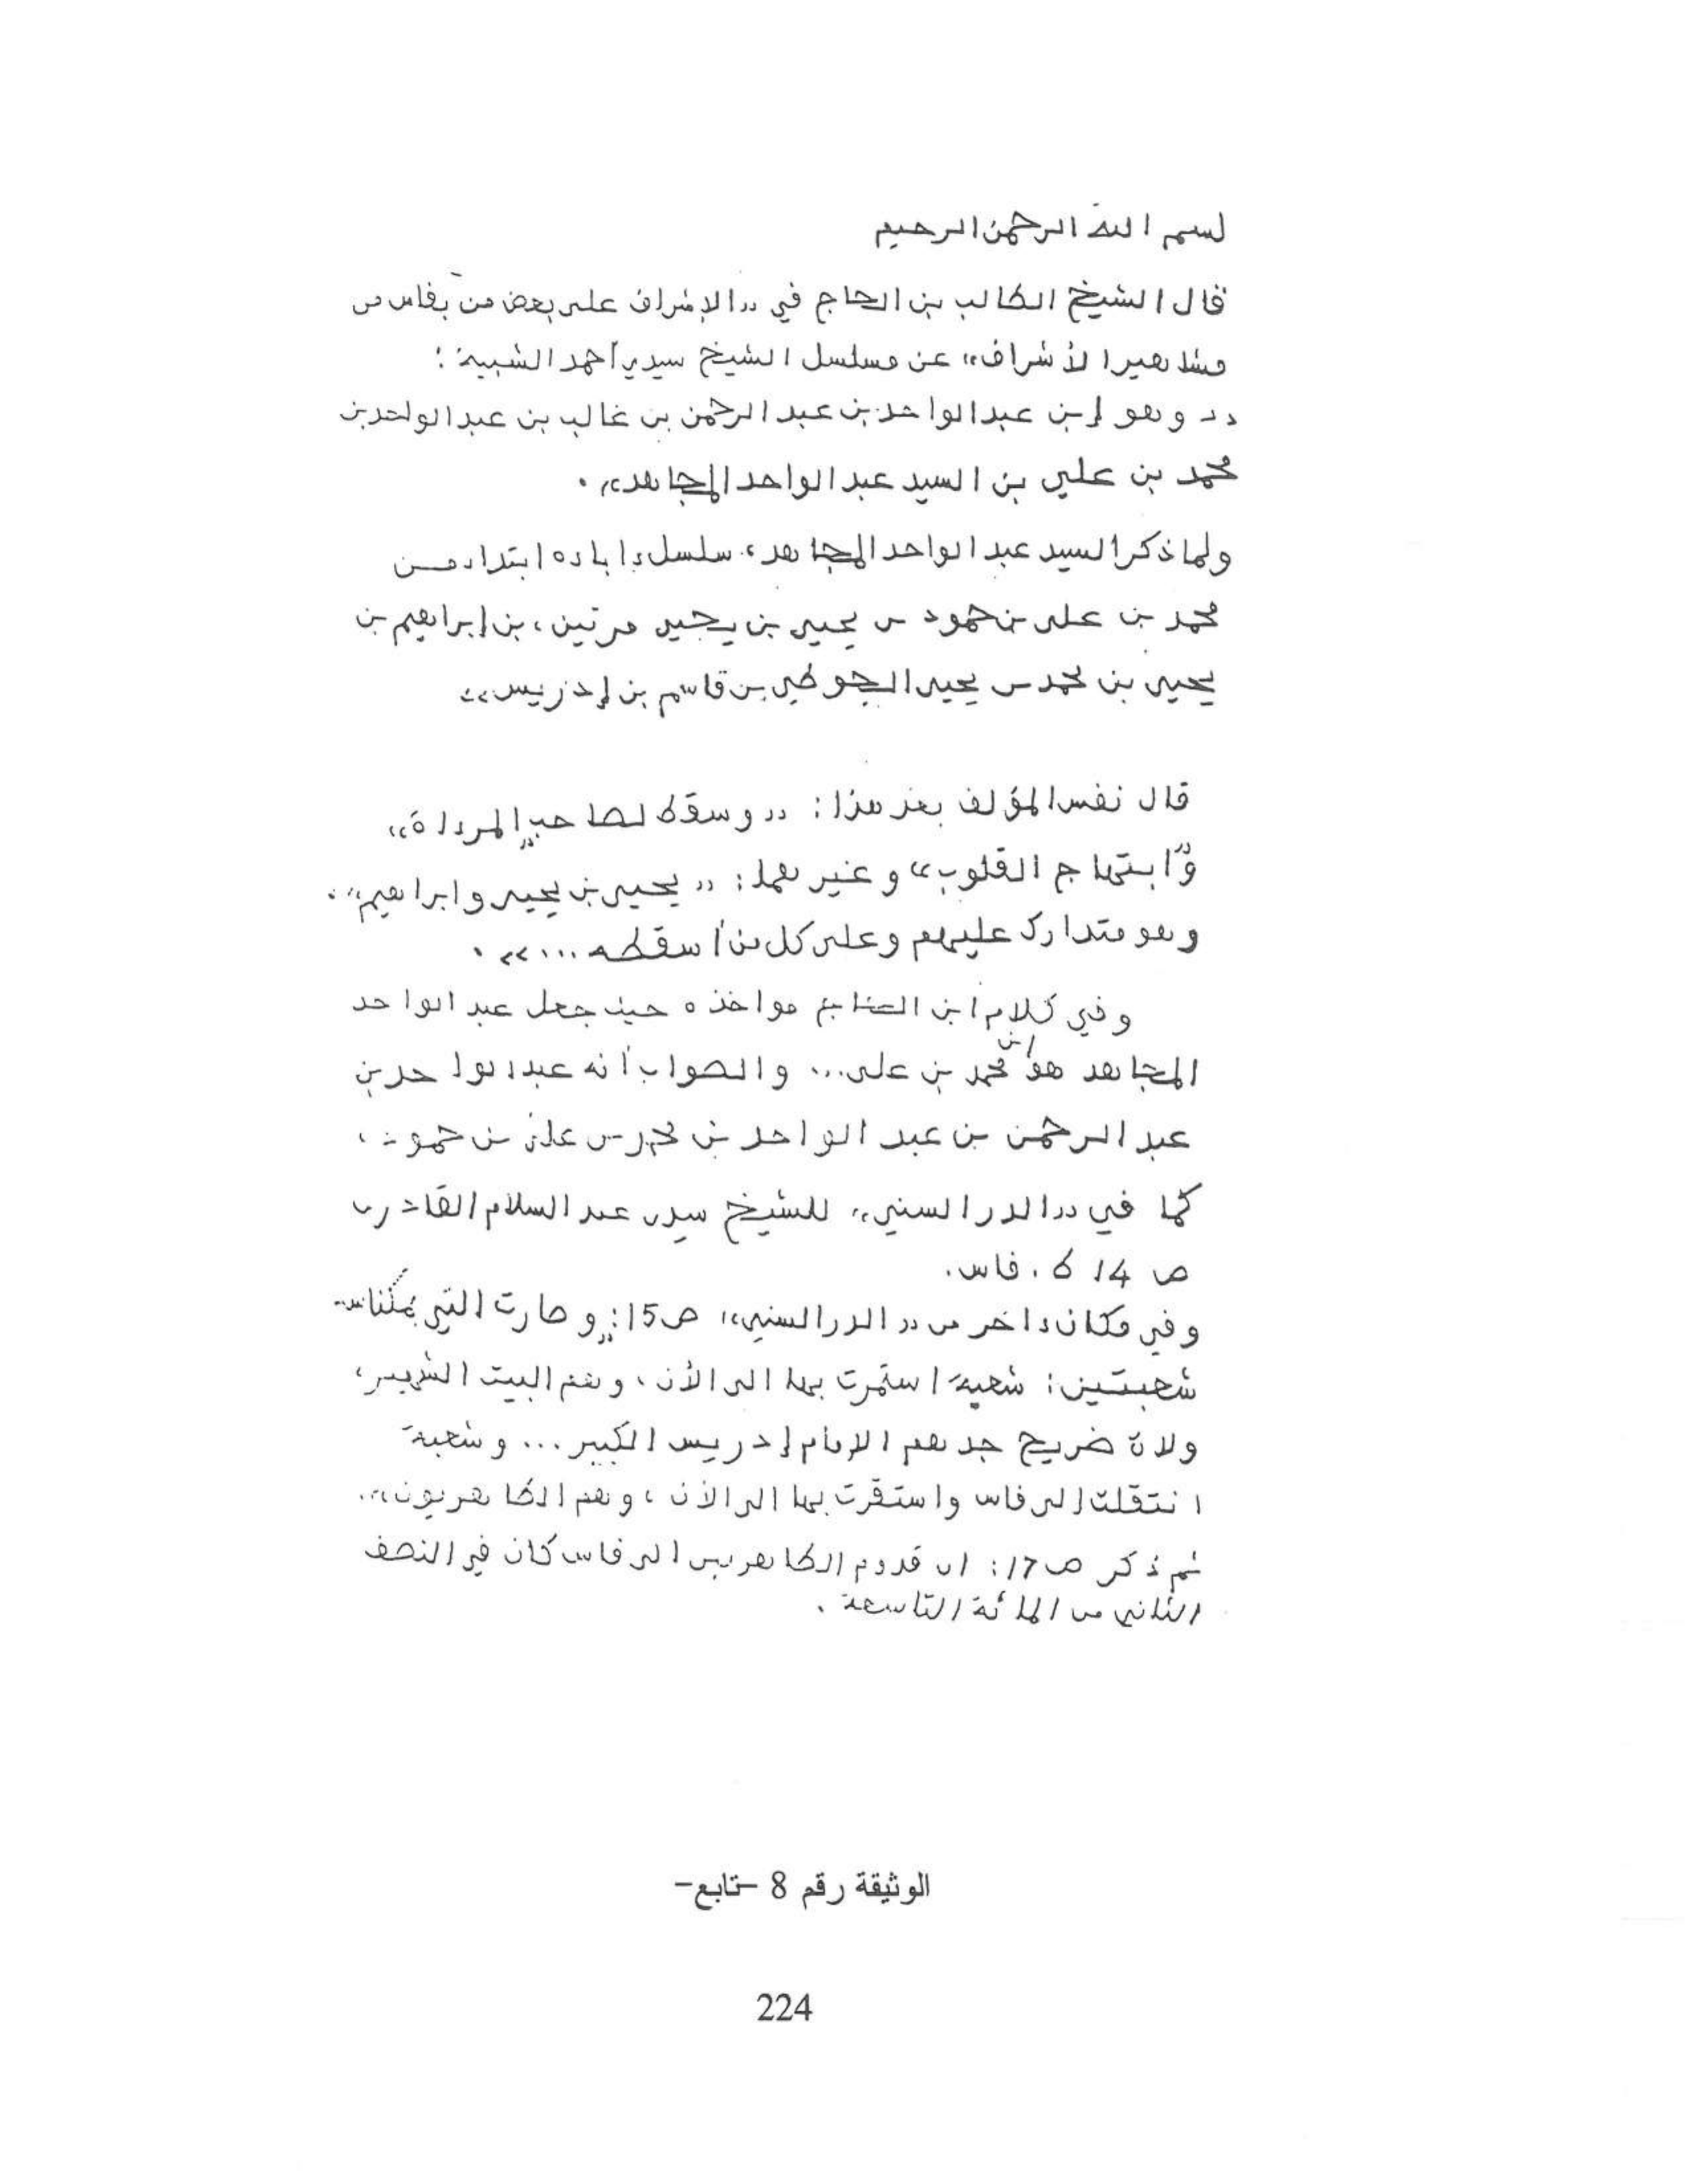 بسم الله الرحمن الرحيم
قال الشيخ الطالب بن الحاج في «الإشراف على بعض من بفاس من
مشاهير الأشراف» عن مسلسل الشيخ سيدي أحمد الشبيه:
«وهو إبن عبد الواحد بن عبد الرحمن بن غالب بن عبد الواحد بن
محمد بن علي بن السيد عبد الواحد المجاهد».
ولما ذكر السيد عبد الواحد المجاهد، سلسل ءاباءه ابتداء مـن
محمد بن على بن حمود بن يحيى بن يحيى مرتين، بن إبراهيم بن
يحيى بن محمد بن يحيى الجوطي بن قاسم بن إدريس»
قال نفس المؤلف بعد هذا: «وسقط لصاحب "المرءاة"
و"ابتهاج القلوب" وغيرهما: «يحيى بن يحيى وابراهيم».
وهو متدارك عليهم وعلى كل من أسقطه ...».
وفي كلام ابن الحاج مواخذه حيث جعل عبد الواحد
المجاهد هو ابن محمد بن على... والصواب أنه عبد الواحد بن
عبد الرحمن بن عبد الواحد بن محمد بن علي بن حمود،
كما في «الدر السني» للشيخ سيدي عبد السلام القادري
ص 14 ط. فاس.
وفي مكان ءاخر من «الدر السني» ص 15: «وصارت التي بمكناس
شعبتين: شعبة استمرت بها الى الأن، وهم البيت الشبيهي،
ولاة ضريح جدهم الإمام إدريس الكبير... وشعبة
انتقلت إلى فاس واستقرت بها الى الأن، وهم الطاهريون».
ثم ذكر ص 17: ان قدوم الطاهريين الى فاس كان في النصف
الثاني من المائة التاسعة.
الوثيقة رقم 8 –تابع–
224